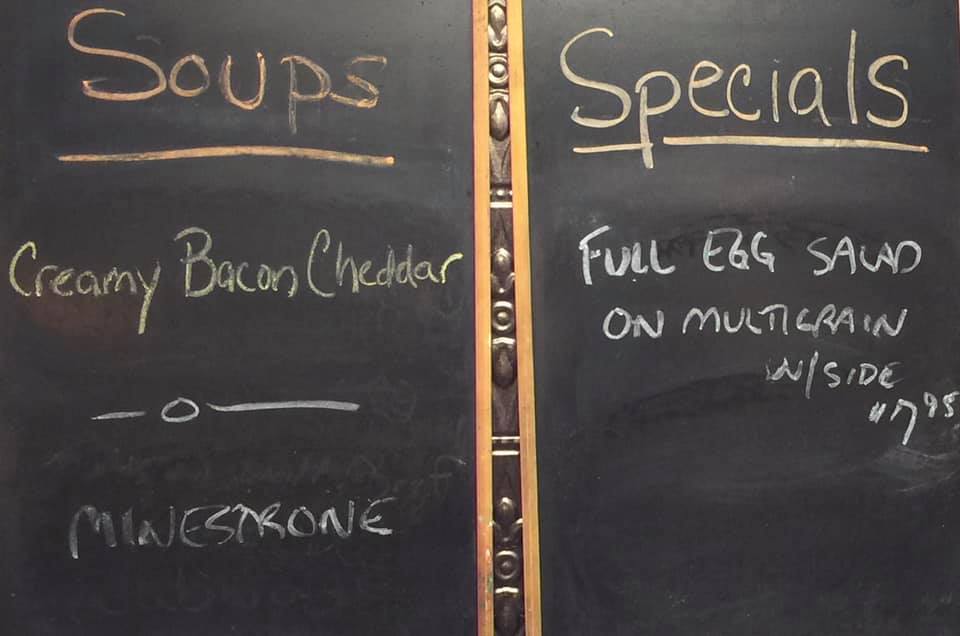 Soups
Creamy Bacon Cheddar
MINESTRONE
Specials
FULL EGG SALAD
ON MULTIGRAIN
W/SIDE
"7 95